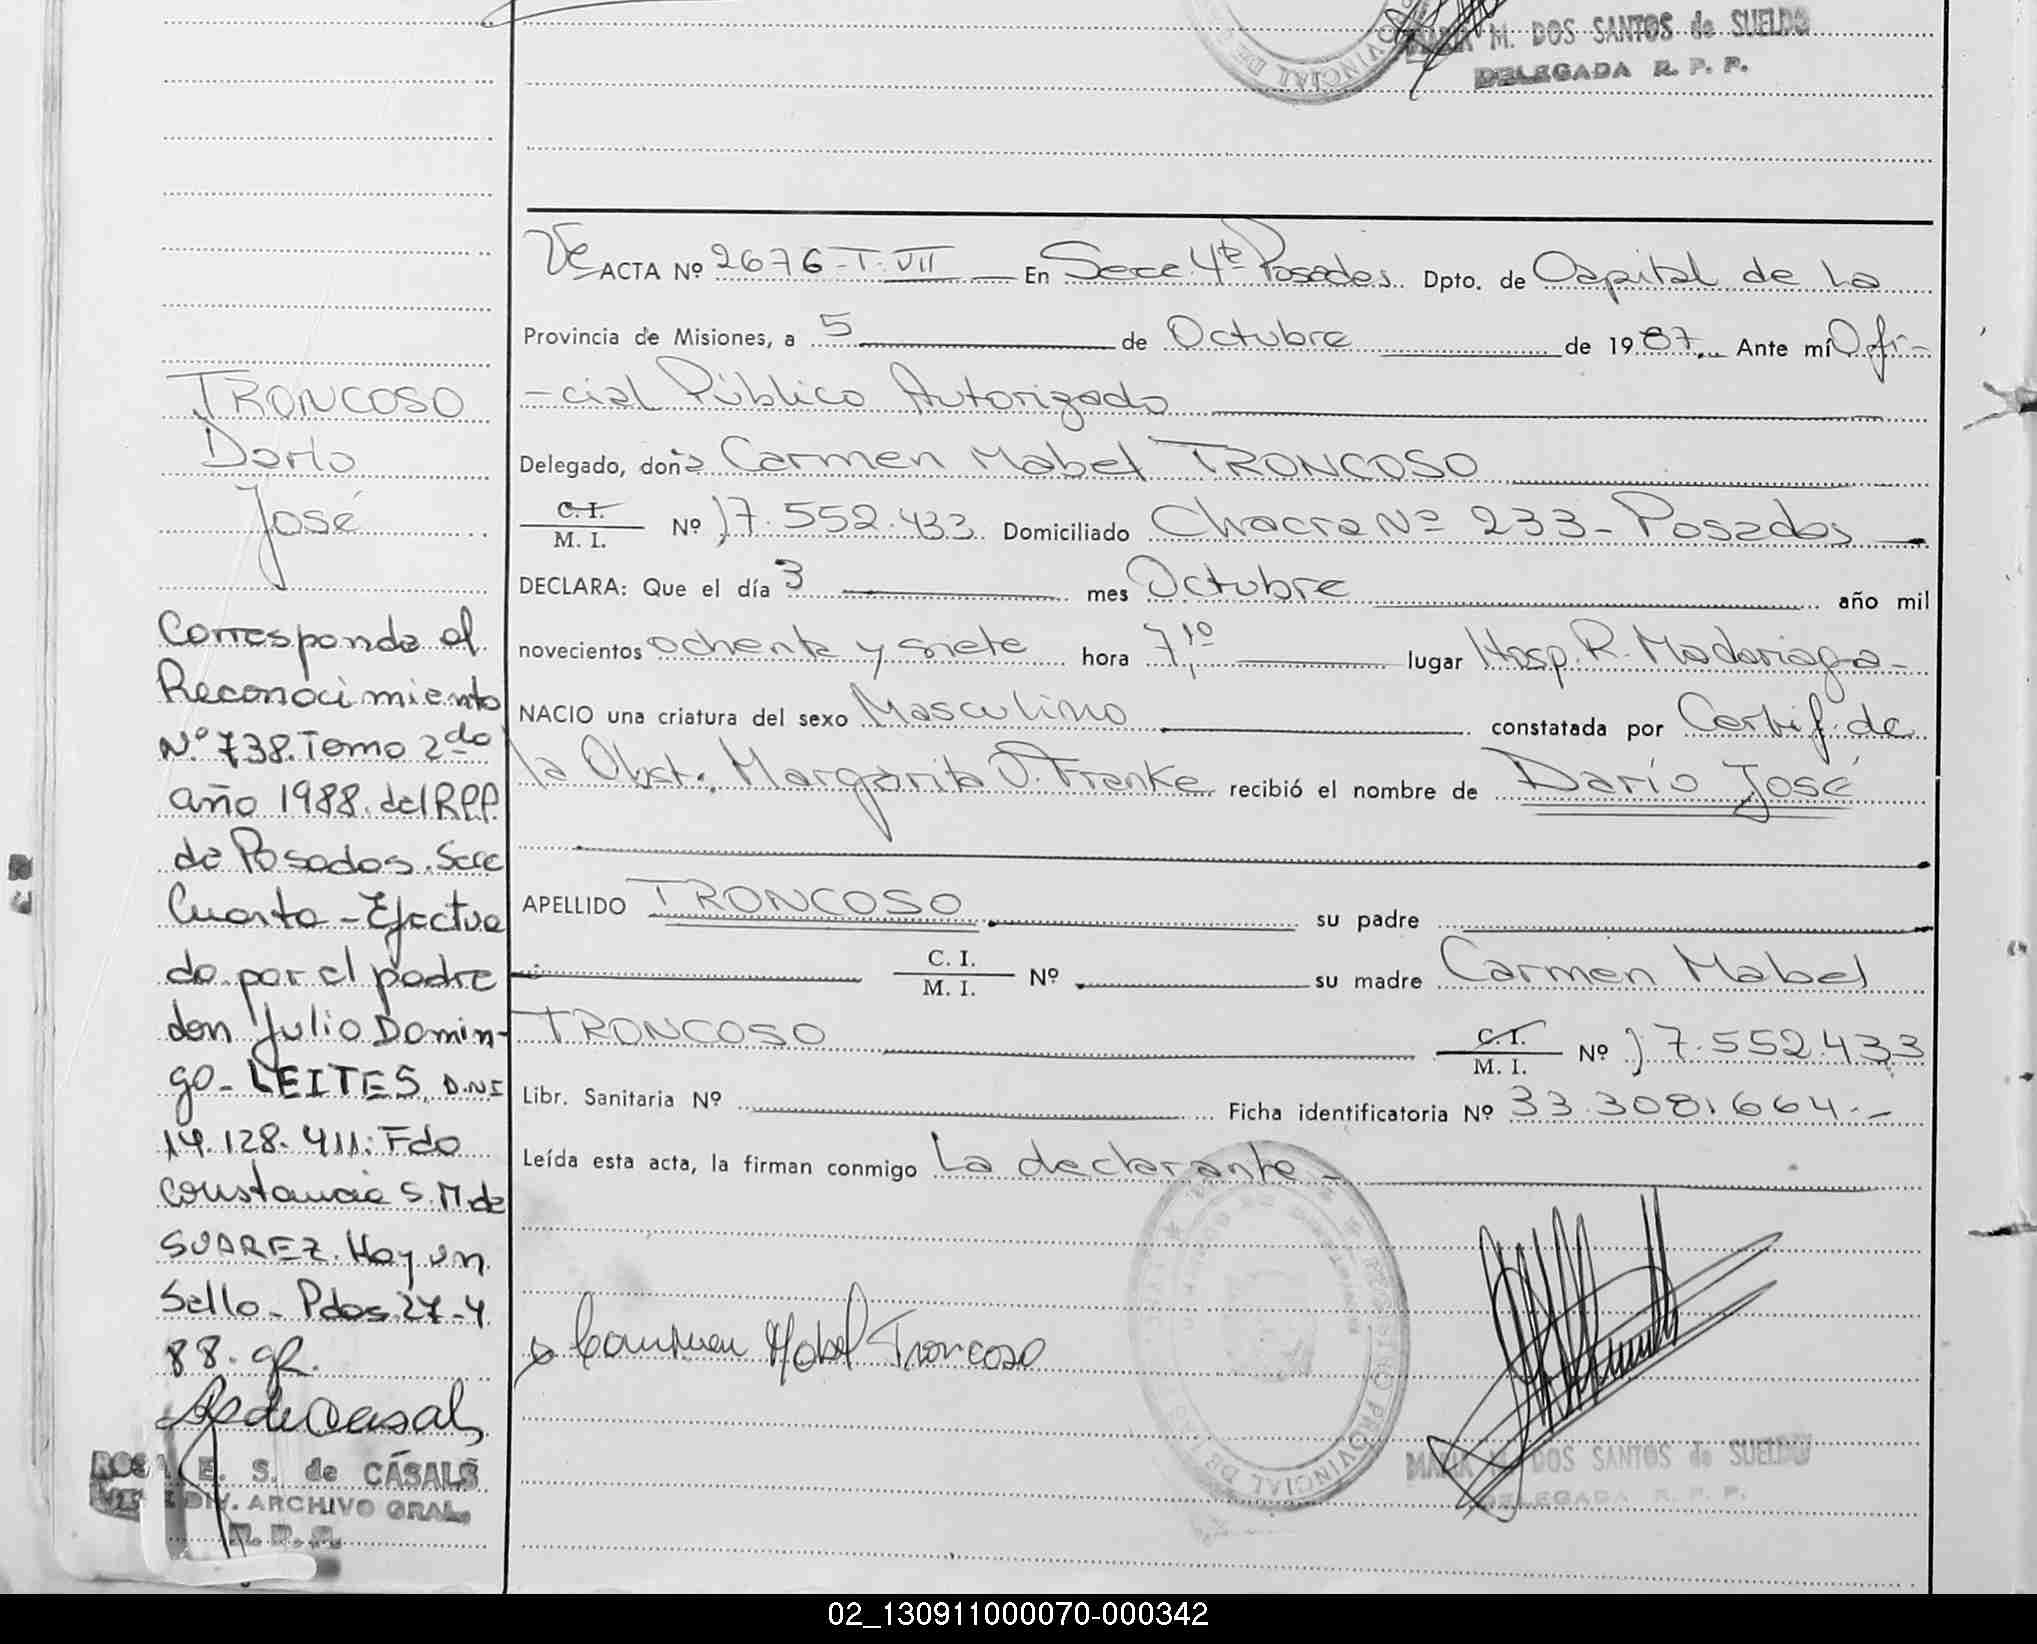 MARIA M. DOS SANTOS de SUELDO
DELEGADA R. P. P.
PROVINCIAL DE
TRONCOSO
Darío
José
Corresponde al
Reconocimiento
Nº 738. Tomo 2do
año 1988. del R.P.P.
de Posadas. Secc
Cuarta - Efectua
do por el padre
don Julio Domin-
go - LEITES, D.N.I
14.128.411: Fdo
constancia S. M. de
SUAREZ. Hay un
Sello - Pdas. 27-4
88. gR.
ROSA E. S. de CÁSALS
DIV. ARCHIVO GRAL.
R. P. P.
ACTA Nº 2676-T. VII En Secc. 4ta Posadas. Dpto. de Capital de La
Provincia de Misiones, a 5 de Octubre de 1987, Ante mí Ofi-
-cial Público Autorizado
Delegado, doña Carmen Mabel TRONCOSO
C. I.
M. I. Nº 17.552.433 Domiciliado Chacra Nº 233 - Posadas
DECLARA: Que el día 3 mes Octubre año mil
novecientos ochenta y siete hora 7,10 lugar Hosp. R. Madariaga -
NACIO una criatura del sexo Masculino constatada por Certif. de
la Obst. Margarita J. Frenke recibió el nombre de Darío José
APELLIDO TRONCOSO su padre
C. I.
M. I. Nº su madre Carmen Mabel
TRONCOSO C. I.
M. I. Nº 17.552.433
Libr. Sanitaria Nº Ficha identificatoria Nº 33.308.664.-
Leída esta acta, la firman conmigo La declarante -
Carmen Mabel Troncoso
REGISTRO PROVINCIAL DE LAS
MARIA M. DOS SANTOS de SUELDO
DELEGADA R. P. P.
02_130911000070-000342